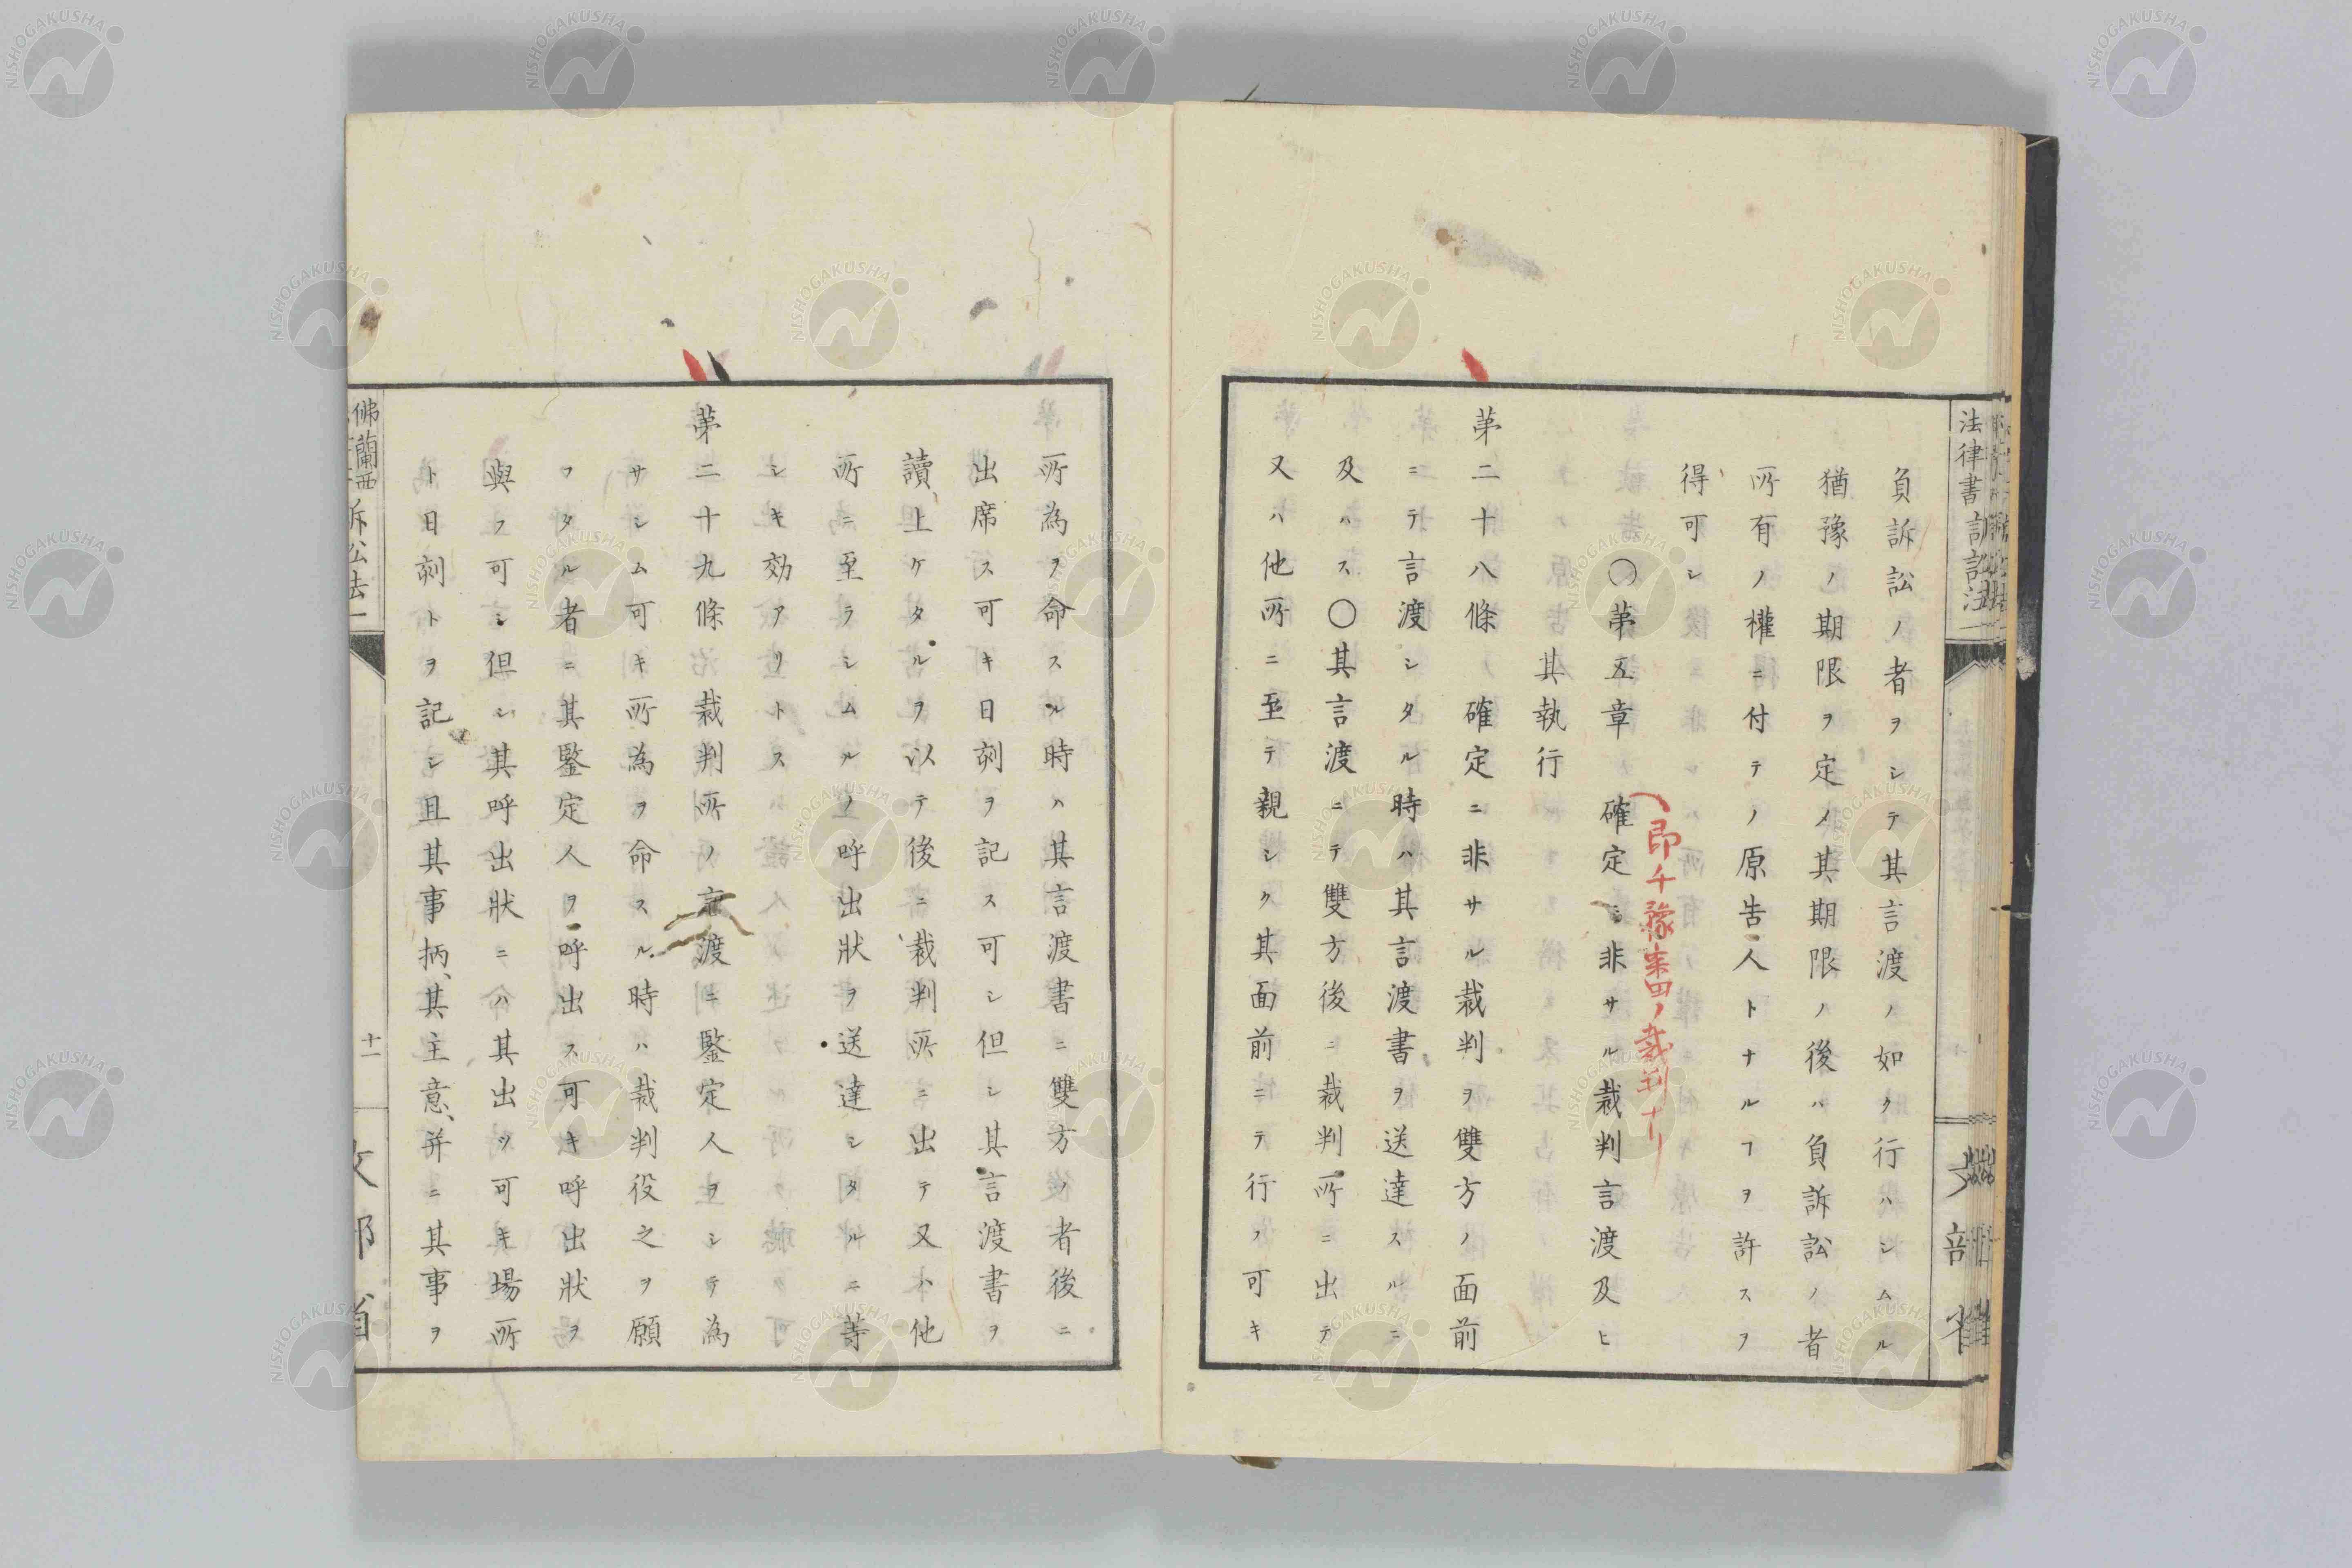 負訴訟ノ者ヲシテ其言渡ノ如ク行ハシムル
猶豫ノ期限ヲ定メ其期限ノ後ハ負訴訟ノ者
所有ノ權ニ付テノ原告人トナルフヲ許スヲ
得可シ
〇苐五章 確定ニ非サル裁判言渡及ヒ
其執行
苐二十八條 確定ニ非サル裁判ヲ雙方ノ面前
ニテ言渡シタル時ハ其言渡書ヲ送達スルニ
及ハス〇其言渡ニテ雙方後ニ裁判所ニ出テ
又ハ他所ニ至テ親シク其面前ニテ行フ可キ
所為ヲ命スル時ハ其言渡書ニ雙方ノ者後ニ
出席ス可キ日刻ヲ記ス可シ但シ其言渡書ヲ
讀上ケタルヲ以テ後ニ裁判所ニ出テ又ハ他
所ニ至ラシムルノ呼出狀ヲ送達シタルニ等
シキ効アリトス
苐二十九條 裁判所ノ言渡ニ鑒定人ヲシテ為
サシム可キ所為ヲ命スル時ハ裁判役之ヲ願
フタル者ニ其鑒定人ヲ呼出ス可キ呼出狀ヲ
與フ可シ但シ其呼出狀ニハ其出ツ可キ場所
ト日刻トヲ記シ且其事柄、其主意、并ニ其事ヲ
佛蘭西訴訟法一
十一
文部省